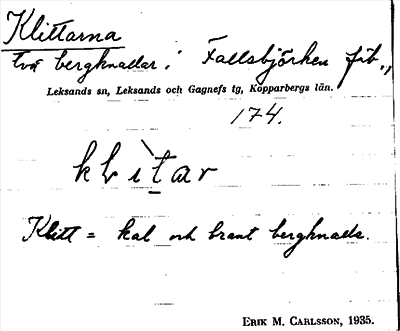 Klittarna
två bergknallar i Fallsbjörken fäb.,
Leksands sn, Leksands och Gagnefs tg, Kopparbergs län.
174.
klìtar
Klitt = kal och brant bergknalle.
ERIK M. CARLSSON, 1935.